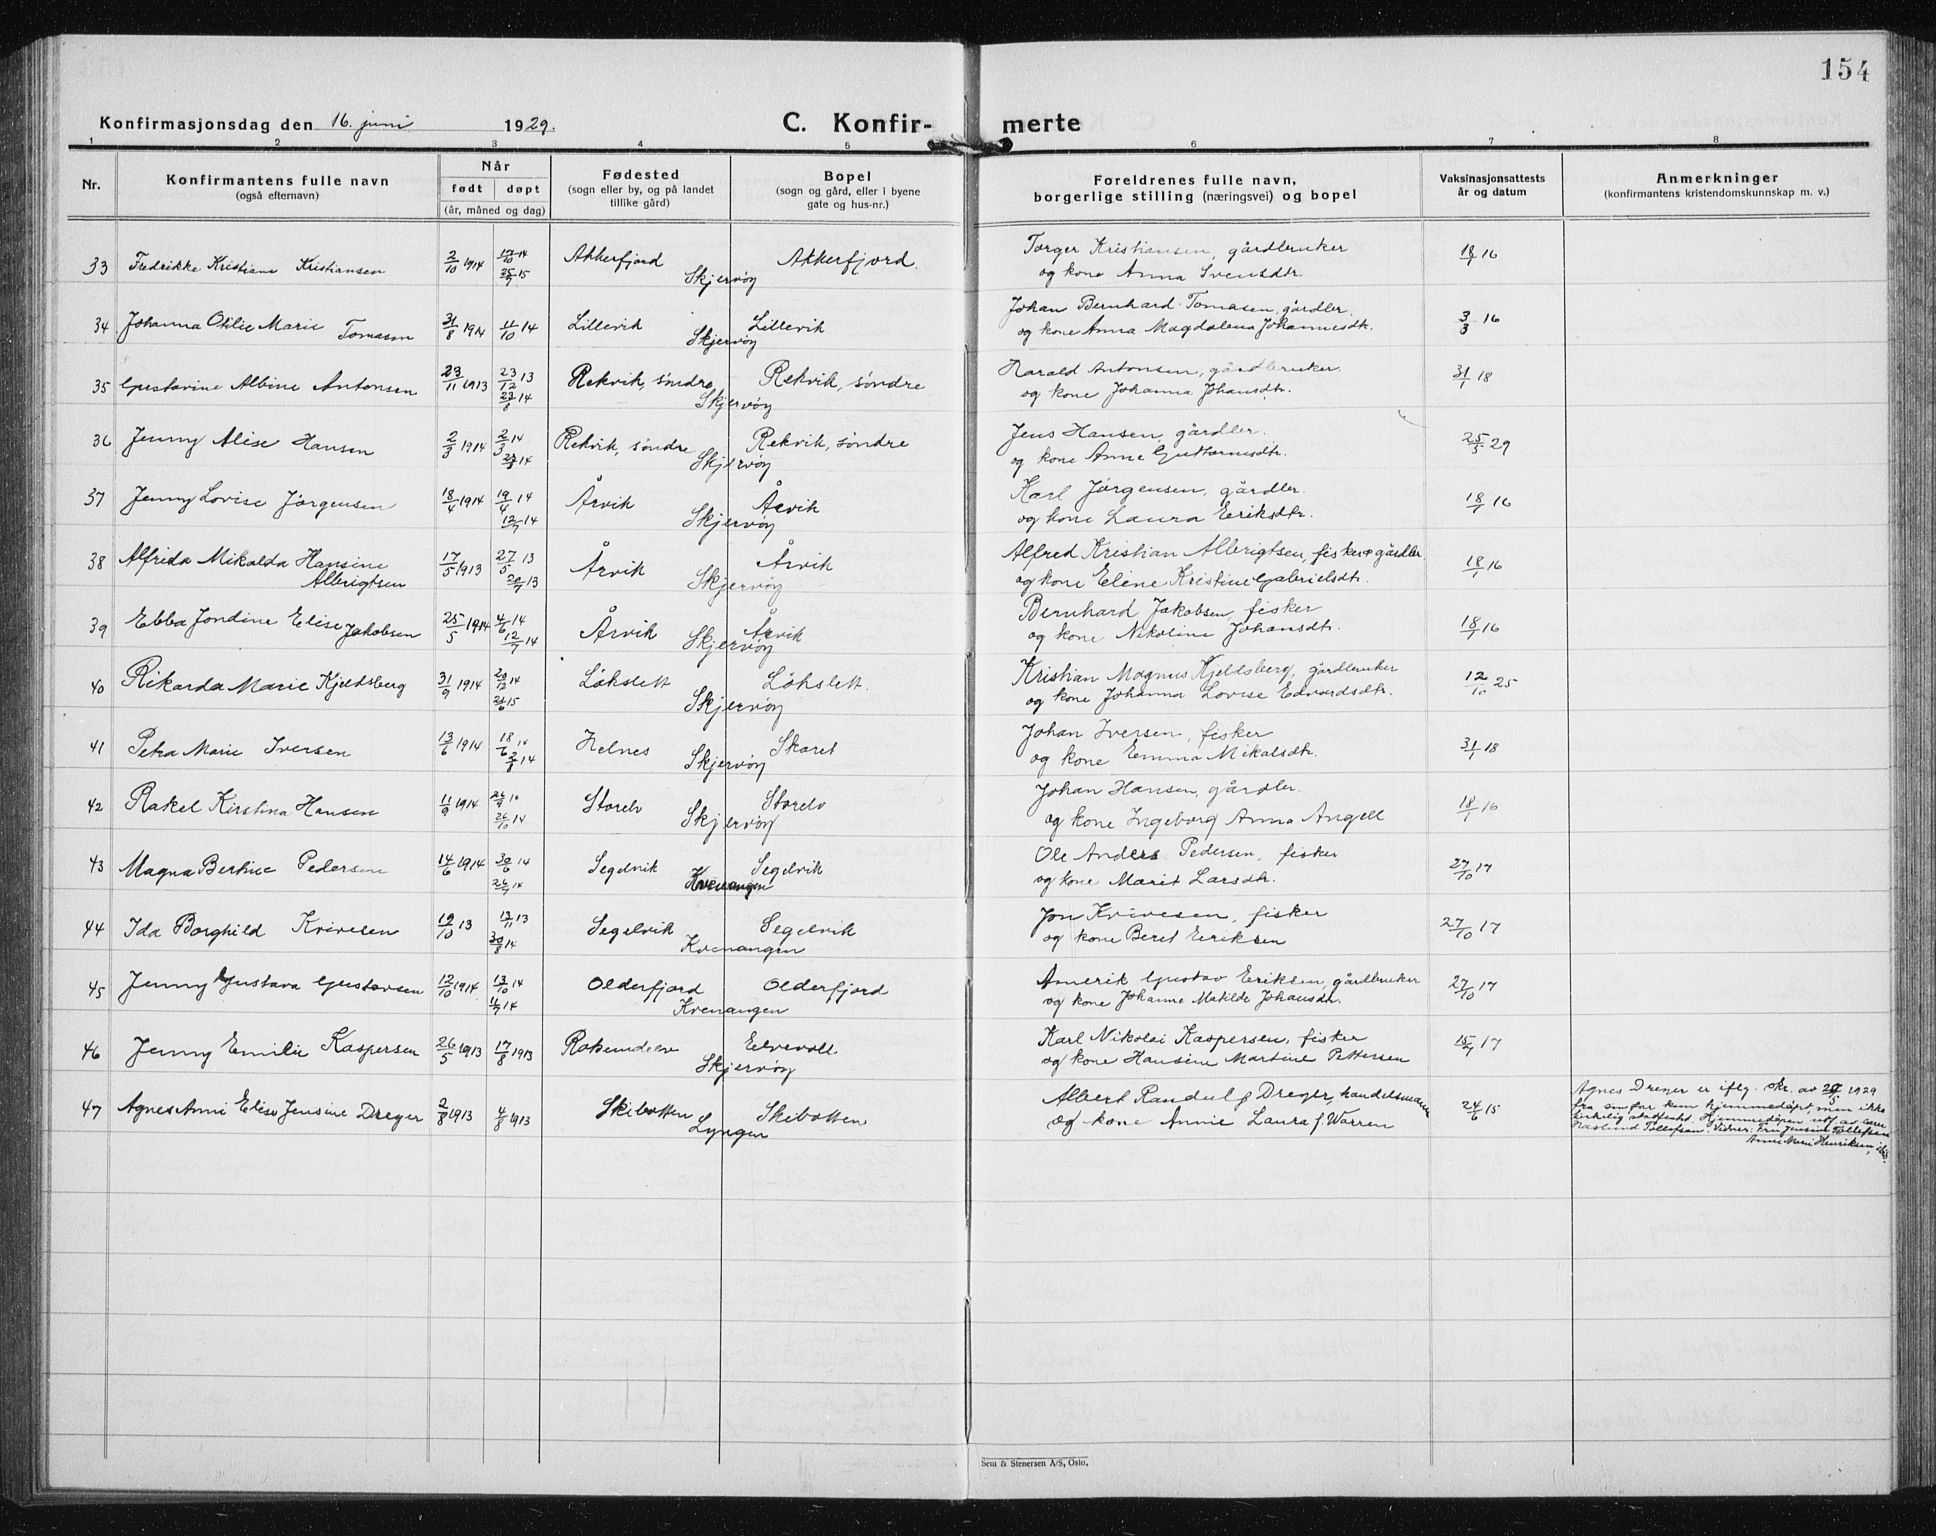 154
Konfirmasjonsdag den 16. juni 1929.
C. Konfir- merte
1 2 3 4 5 6 7 8
Nr.
Konfirmantens fulle navn
(også efternavn)
Når
født døpt
(år, måned og dag)
Fødested
(sogn eller by, og på landet
tillike gård)
Bopel
(sogn og gård, eller i byene
gate og hus-nr.)
Foreldrenes fulle navn,
borgerlige stilling (næringsvei) og bopel
Vaksinasjonsattests
år og datum
Anmerkninger
(konfirmantens kristendomskunnskap m. v.)
33 Fredrikke Kristiane Kristiansen 2/10 1914 Akkerfjord Skjervöy Akkerfjord. Torger Kristiansen, gårdbruker 18/1 16
og kone Anna Svensdtr.
34 Johanna Otilie Marie Tomasen 31/8 1914 11/10 14 Lillevik Skjervöy Lillevik Johan Bernhard Tomasen, gårdbr. 3/3 16
og kone Anna Magdalena Johannesdtr.
35 Gustavine Albine Antonsen 23/11 1913 23/12 13 23/8 14 Rekvik, söndre Skjervöy Rekvik, söndre Harald Antonsen, gårdbruker 31/1 18
og kone Johanna Johansdtr.
36 Jenny Alise Hansen 2/3 1914 2/3 14 Rekvik, söndre Skjervöy Rekvik, söndre Jens Hansen, gårdbr. 25/5 29
og kone Anne Guttormsdtr.
37 Jenny Lovise Jörgensen 18/4 1914 19/4 14 12/7 14 Årvik Skjervöy Årvik Karl Jörgensen, gårdbr. 18/1 16
og kone Laura Eriksdtr.
38 Alfreda Mikalda Hansine Albrigtsen 17/5 1913 27/5 13 20/7 13 Årvik Skjervöy Årvik Alfred Kristian Albrigtsen, fisker o gårdbr. 18/1 16
og kone Eline Kristine Gabrielsdtr.
39 Ebba Jondine Elise Jakobsen 25/5 1914 4/6 14 12/7 14 Årvik Skjervöy Årvik Bernhard Jakobsen, fisker 18/1 16
og kone Nikoline Johansdtr.
40 Rikarda Marie Kjeldsberg 31/9 1914 20/12 14 Lökslett Skjervöy Lökslett. Kristian Magnus Kjeldsberg, gårdbruker 12/10 25
og kone Johanna Lovise Edvardsdtr.
41 Petra Marie Iversen 13/6 1914 18/6 14 2/8 14 Helnes Skjervöy Skaret Johan Iversen, fisker 31/1 18
og kone Emma Mikalsdtr.
42 Rakel Kirstina Hansen 11/9 1914 26/10 14 Storelv Skjervöy Storelv Johan Hansen, gårdbr. 18/1 16
og kone Ingeborg Anna Angell
43 Magna Bertine Pedersen 14/6 1914 30/6 14 26/7 14 Segelvik Kvenangen Segelvik Ole Anders Pedersen, fisker 27/10 17
og kone Marit Larsdtr.
44 Ida Borghild Krivesen 19/10 13 13/11 13 30/8 14 Segelvik Kvenangen Segelvik Jon Krivesen, fisker 27/10 17
og kone Beret Eriksen
45 Jenny Gustava Gustavsen 12/10 1914 13/10 14 Olderfjord Kvenangen Olderfjord Amerik Gustav Eriksen, gårdbruker 27/10 17
og kone Johanne Matilde Johansdtr.
46 Jenny Emilie Kaspersen 26/5 1913 17/8 1913 Skjervöy Elvevoll Karl Nikolai Kaspersen, fisker 15/7 17
og kone Hansine Martine Pettersen
47 Agnes Anni Elise Jensine Dreyer 2/8 1913 4/8 1913 Skibotten Lyngen Skibotten Albert Randulf Dreyer, handelsmann 24/6 15
og kone Annie Laura f. Warren
Agnes Dreyer er iflg. skr. av 29/5 1929
fra sin far kun hjemmedöpt, men ikke
Hjemmedåpen utf. av
Tollefsen. Vidner: Fru Jensine Tollefsen
Anne Marie Henriksen,
Sem & Stenersen A/S, Oslo.